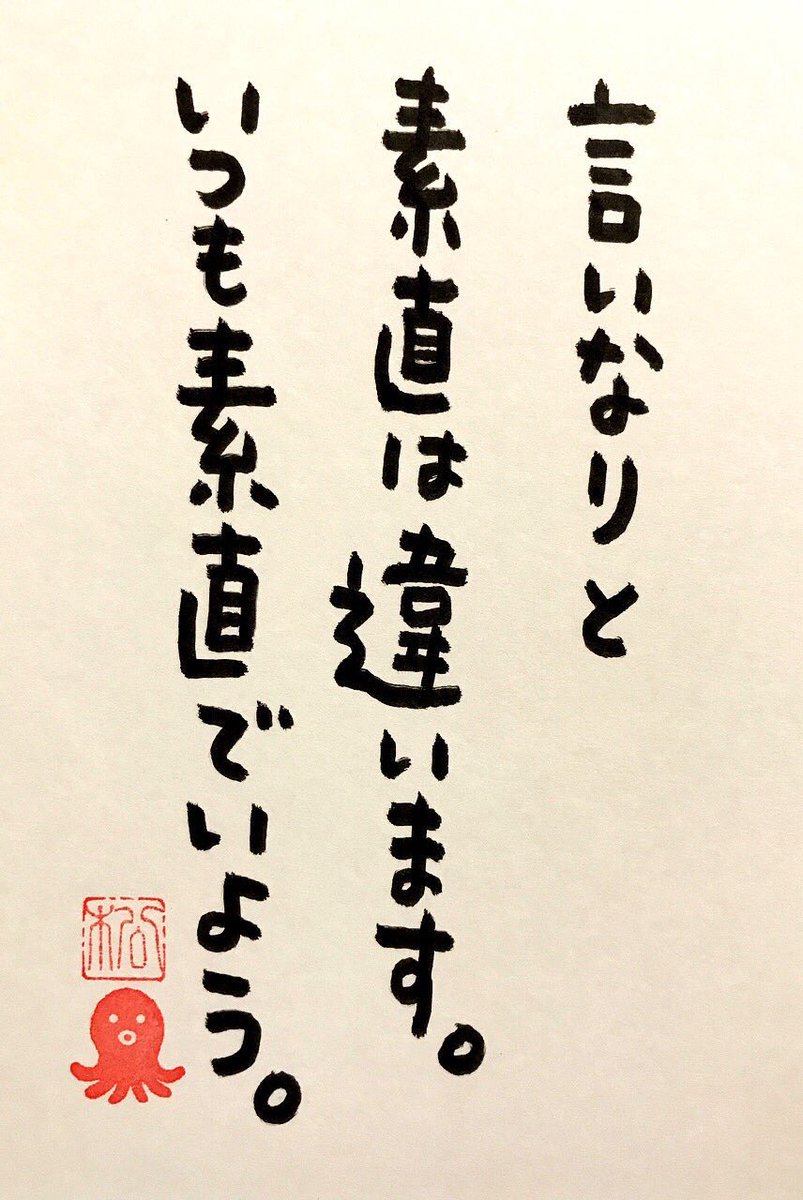 言いなりと
素直は違います。
いつも素直でいよう。
松